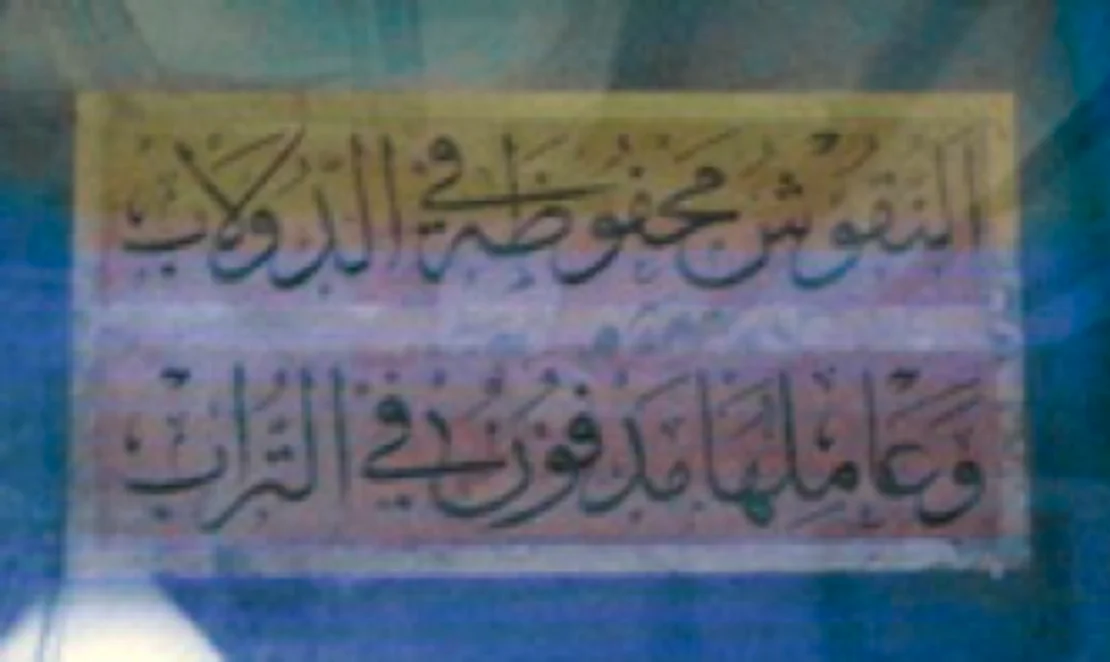 النقوش محفوظة في الدولاب
وعاملها مدفون في التراب